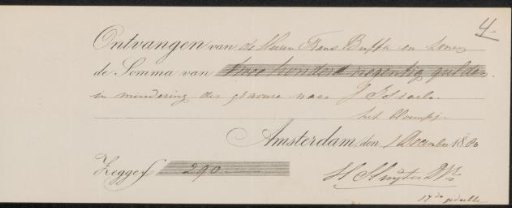 4.
Ontvangen van de Heeren Frans Buffa en Zonen
de Somma van twee honderd negentig gulden
in mindering der gravure naar J. Israels
het
Amsterdam, den 1 December 1880
Zegge ƒ 290.-